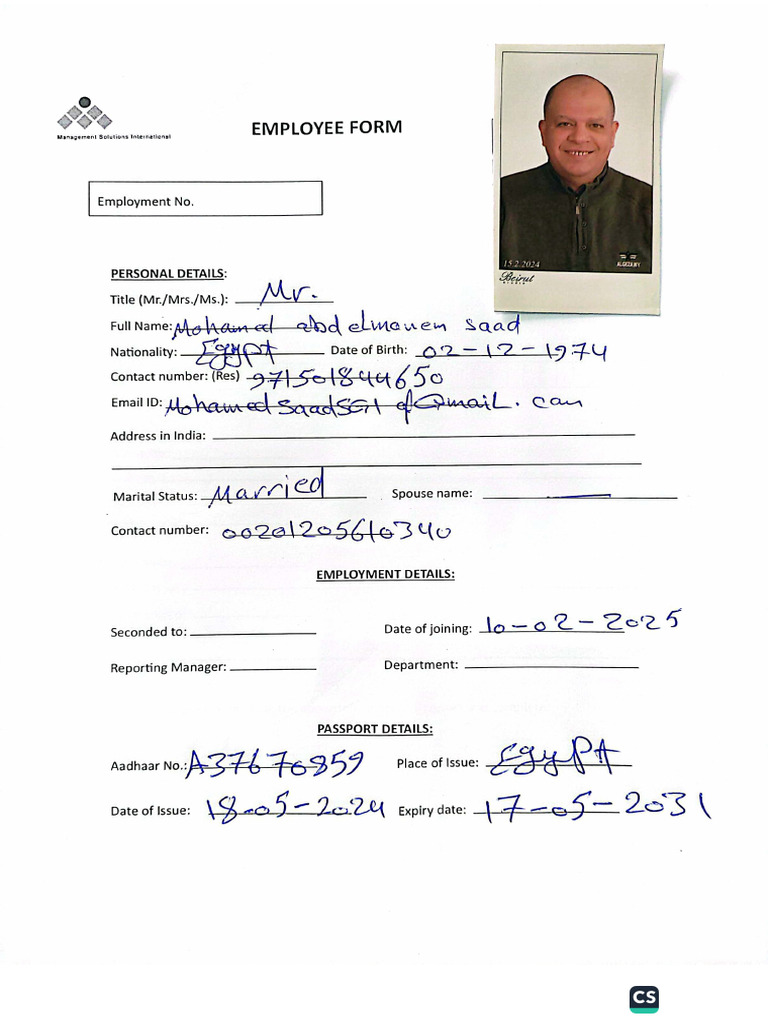 Management Solutions International
EMPLOYEE FORM
Employment No.
15.2.2024
Beirut
PERSONAL DETAILS:
Title (Mr./Mrs./Ms.): Mr.
Full Name: Mohamed abdelmonem saad
Nationality: Egypt Date of Birth: 02-12-1974
Contact number: (Res) 971501844650
Email ID:
Address in India:
Marital Status: Married Spouse name:
Contact number: 00201205610340
EMPLOYMENT DETAILS:
Seconded to: Date of joining: 10-02-2025
Reporting Manager: Department:
PASSPORT DETAILS:
Aadhaar No.: A37670859 Place of Issue: Egypt
Date of Issue: 18-05-2024 Expiry date: 17-05-2031
CS